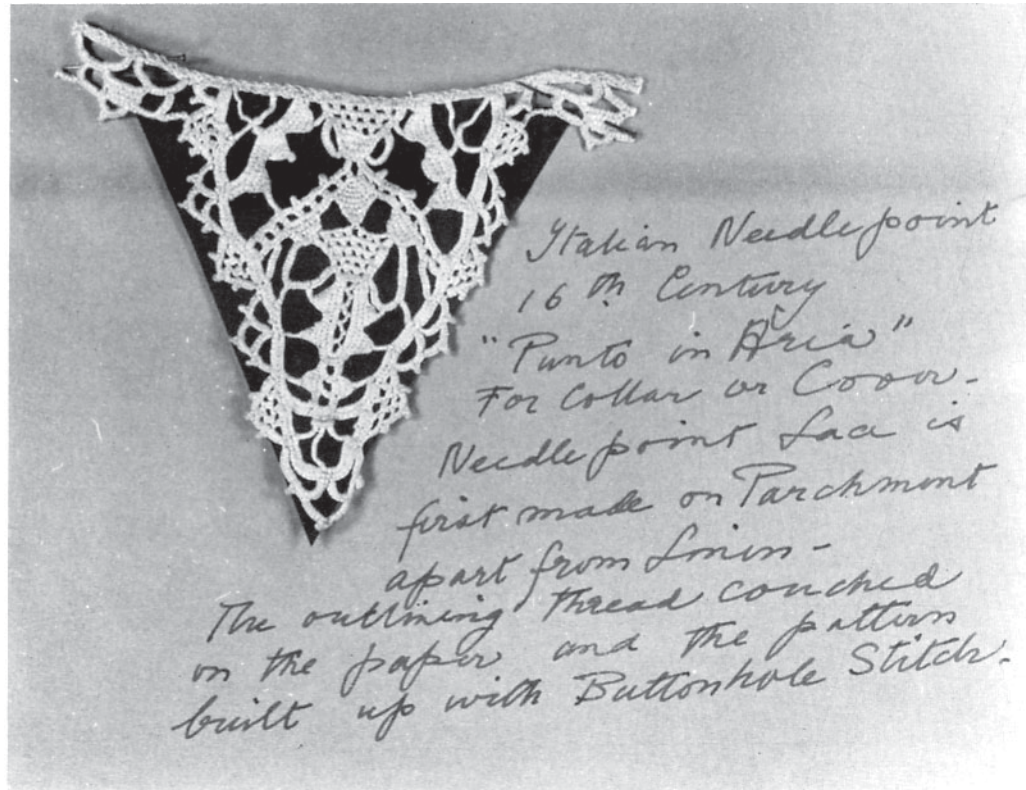 Italian Needlepoint
16th Century
"Punto in Aria"
For Collar or Cover-
Needlepoint Lace is
first made on Parchment
apart from Linen-
The outlining thread couched
on the paper and the pattern
built up with Buttonhole Stitch.